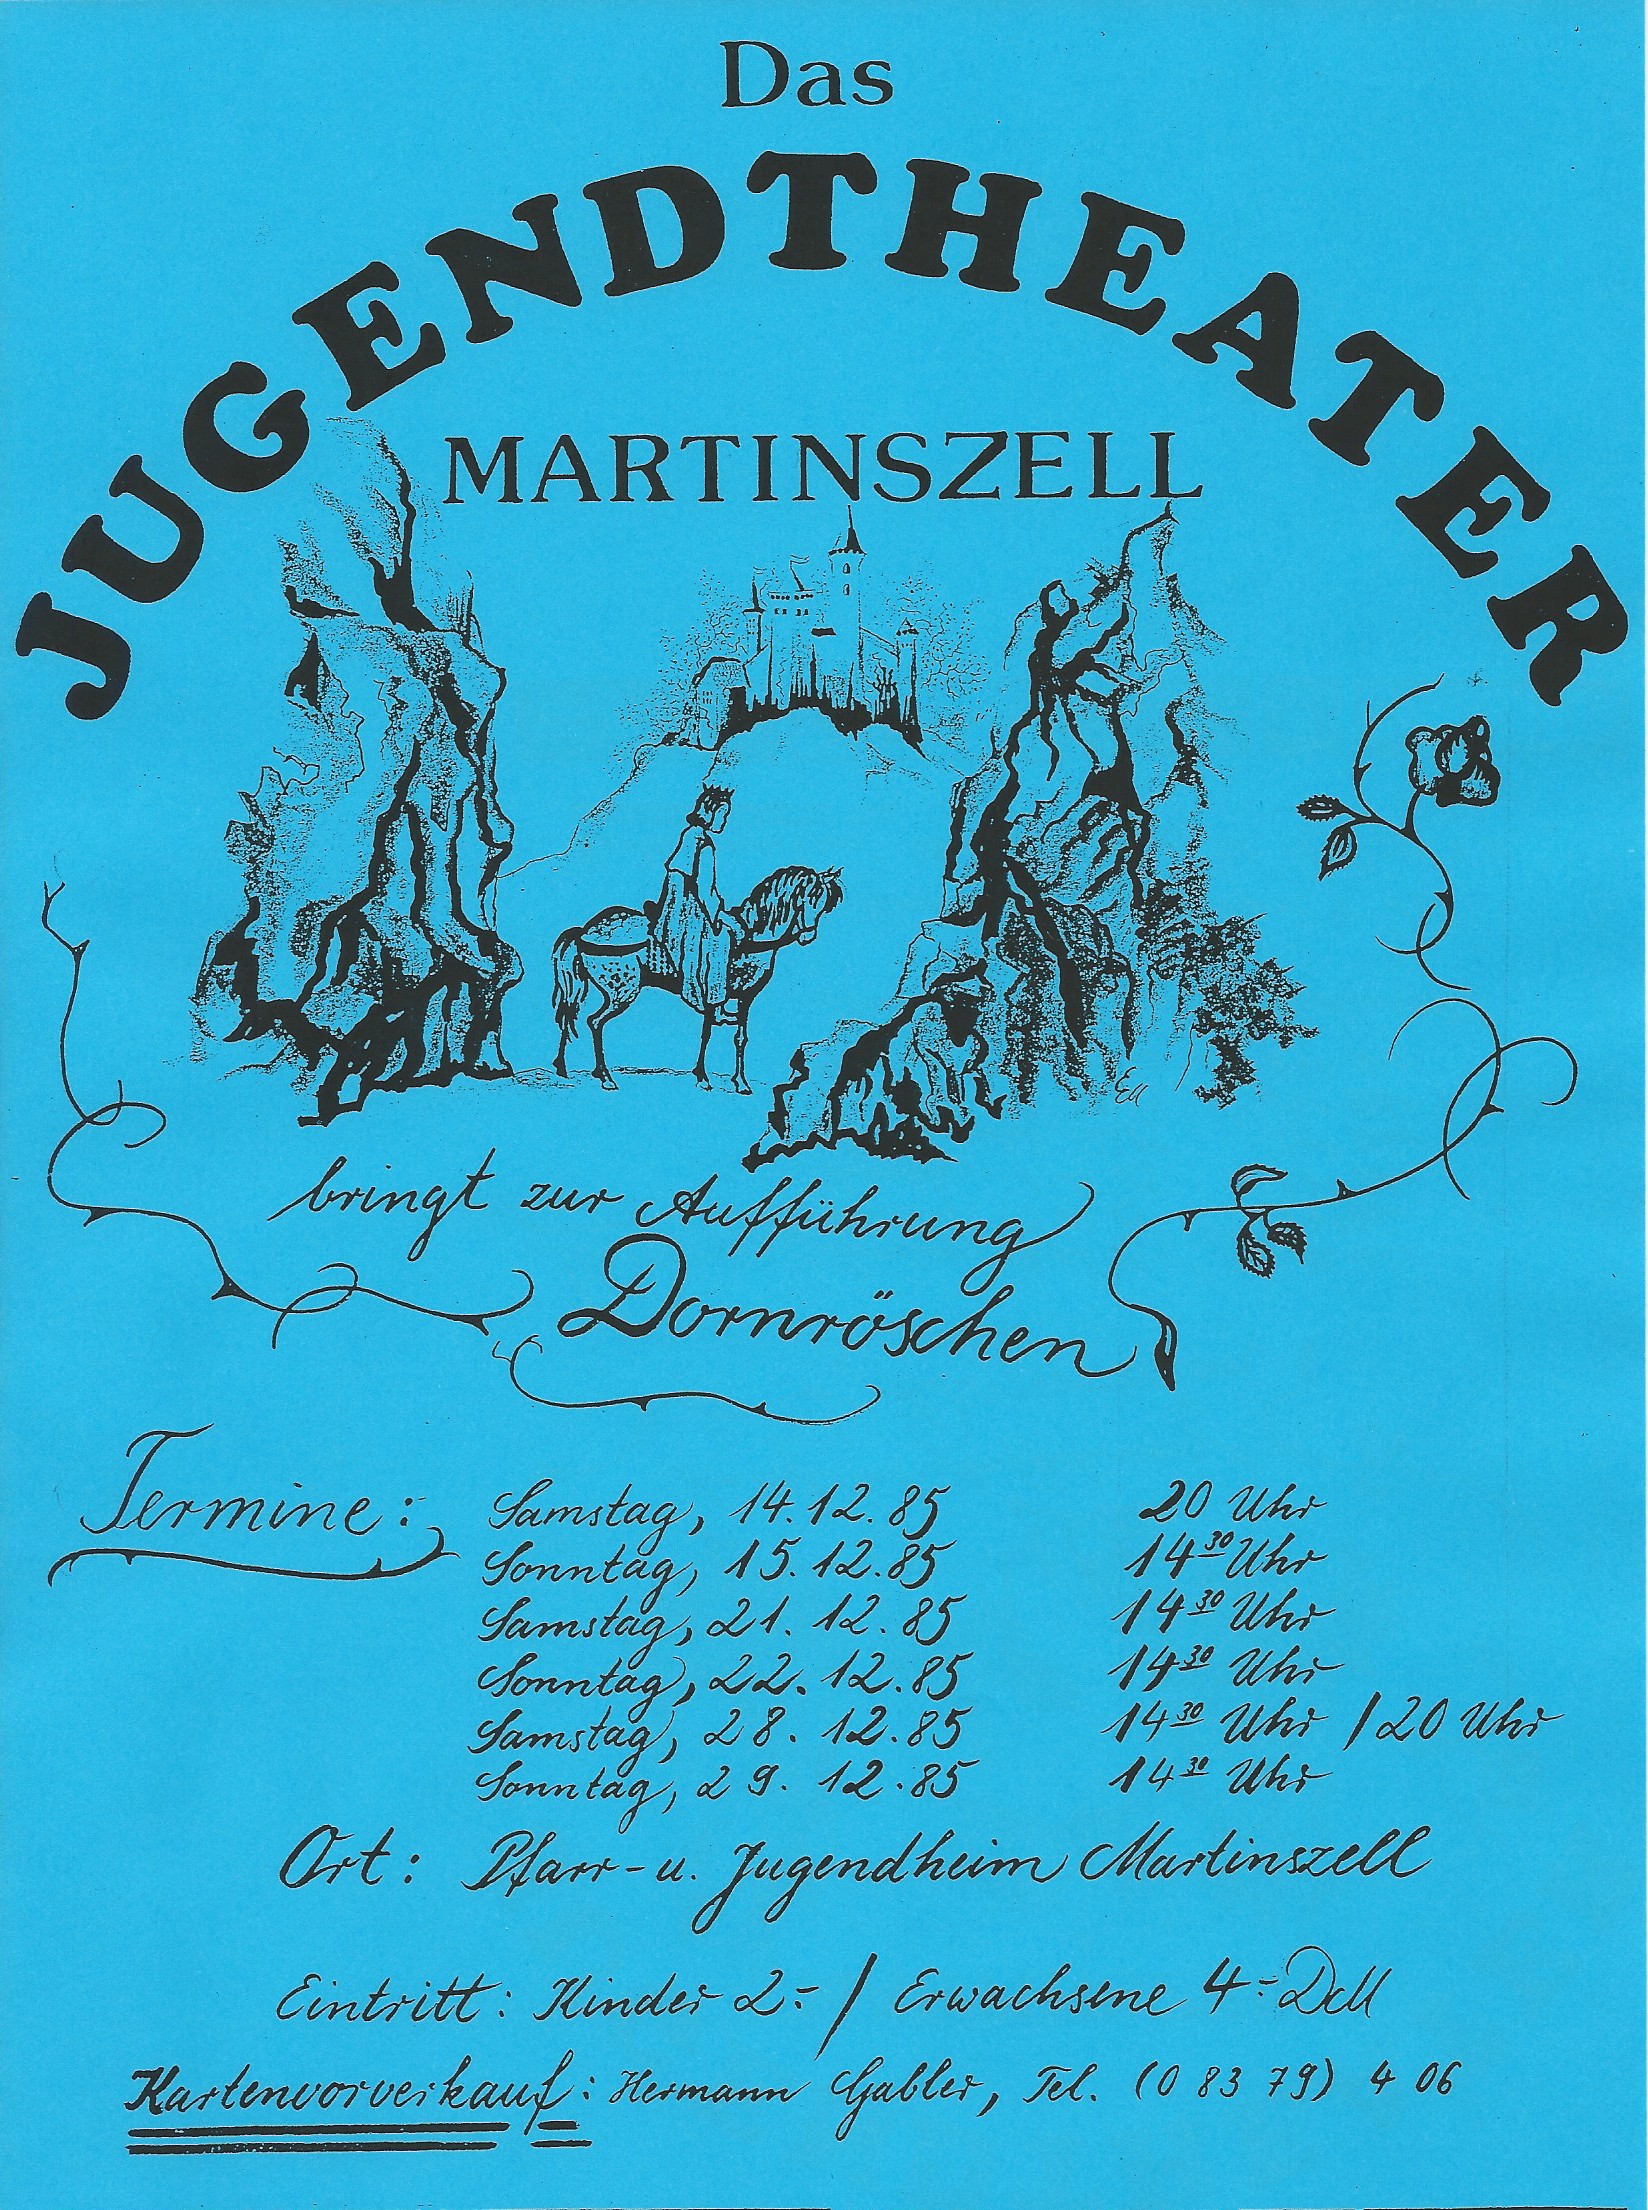 Das
JUGENDTHEATER
MARTINSZELL
EM
bringt zur Aufführung
Dornröschen
Termine: Samstag, 14.12.85 20 Uhr
Sonntag, 15.12.85 14 30 Uhr
Samstag, 21.12.85 14 30 Uhr
Sonntag, 22.12.85 14 30 Uhr
Samstag, 28.12.85 14 30 Uhr / 20 Uhr
Sonntag, 29.12.85 14 30 Uhr
Ort: Pfarr- u. Jugendheim Martinszell
Eintritt: Kinder 2.- / Erwachsene 4.- DM
Kartenvorverkauf: Hermann Gabler, Tel. (0 83 79) 4 06